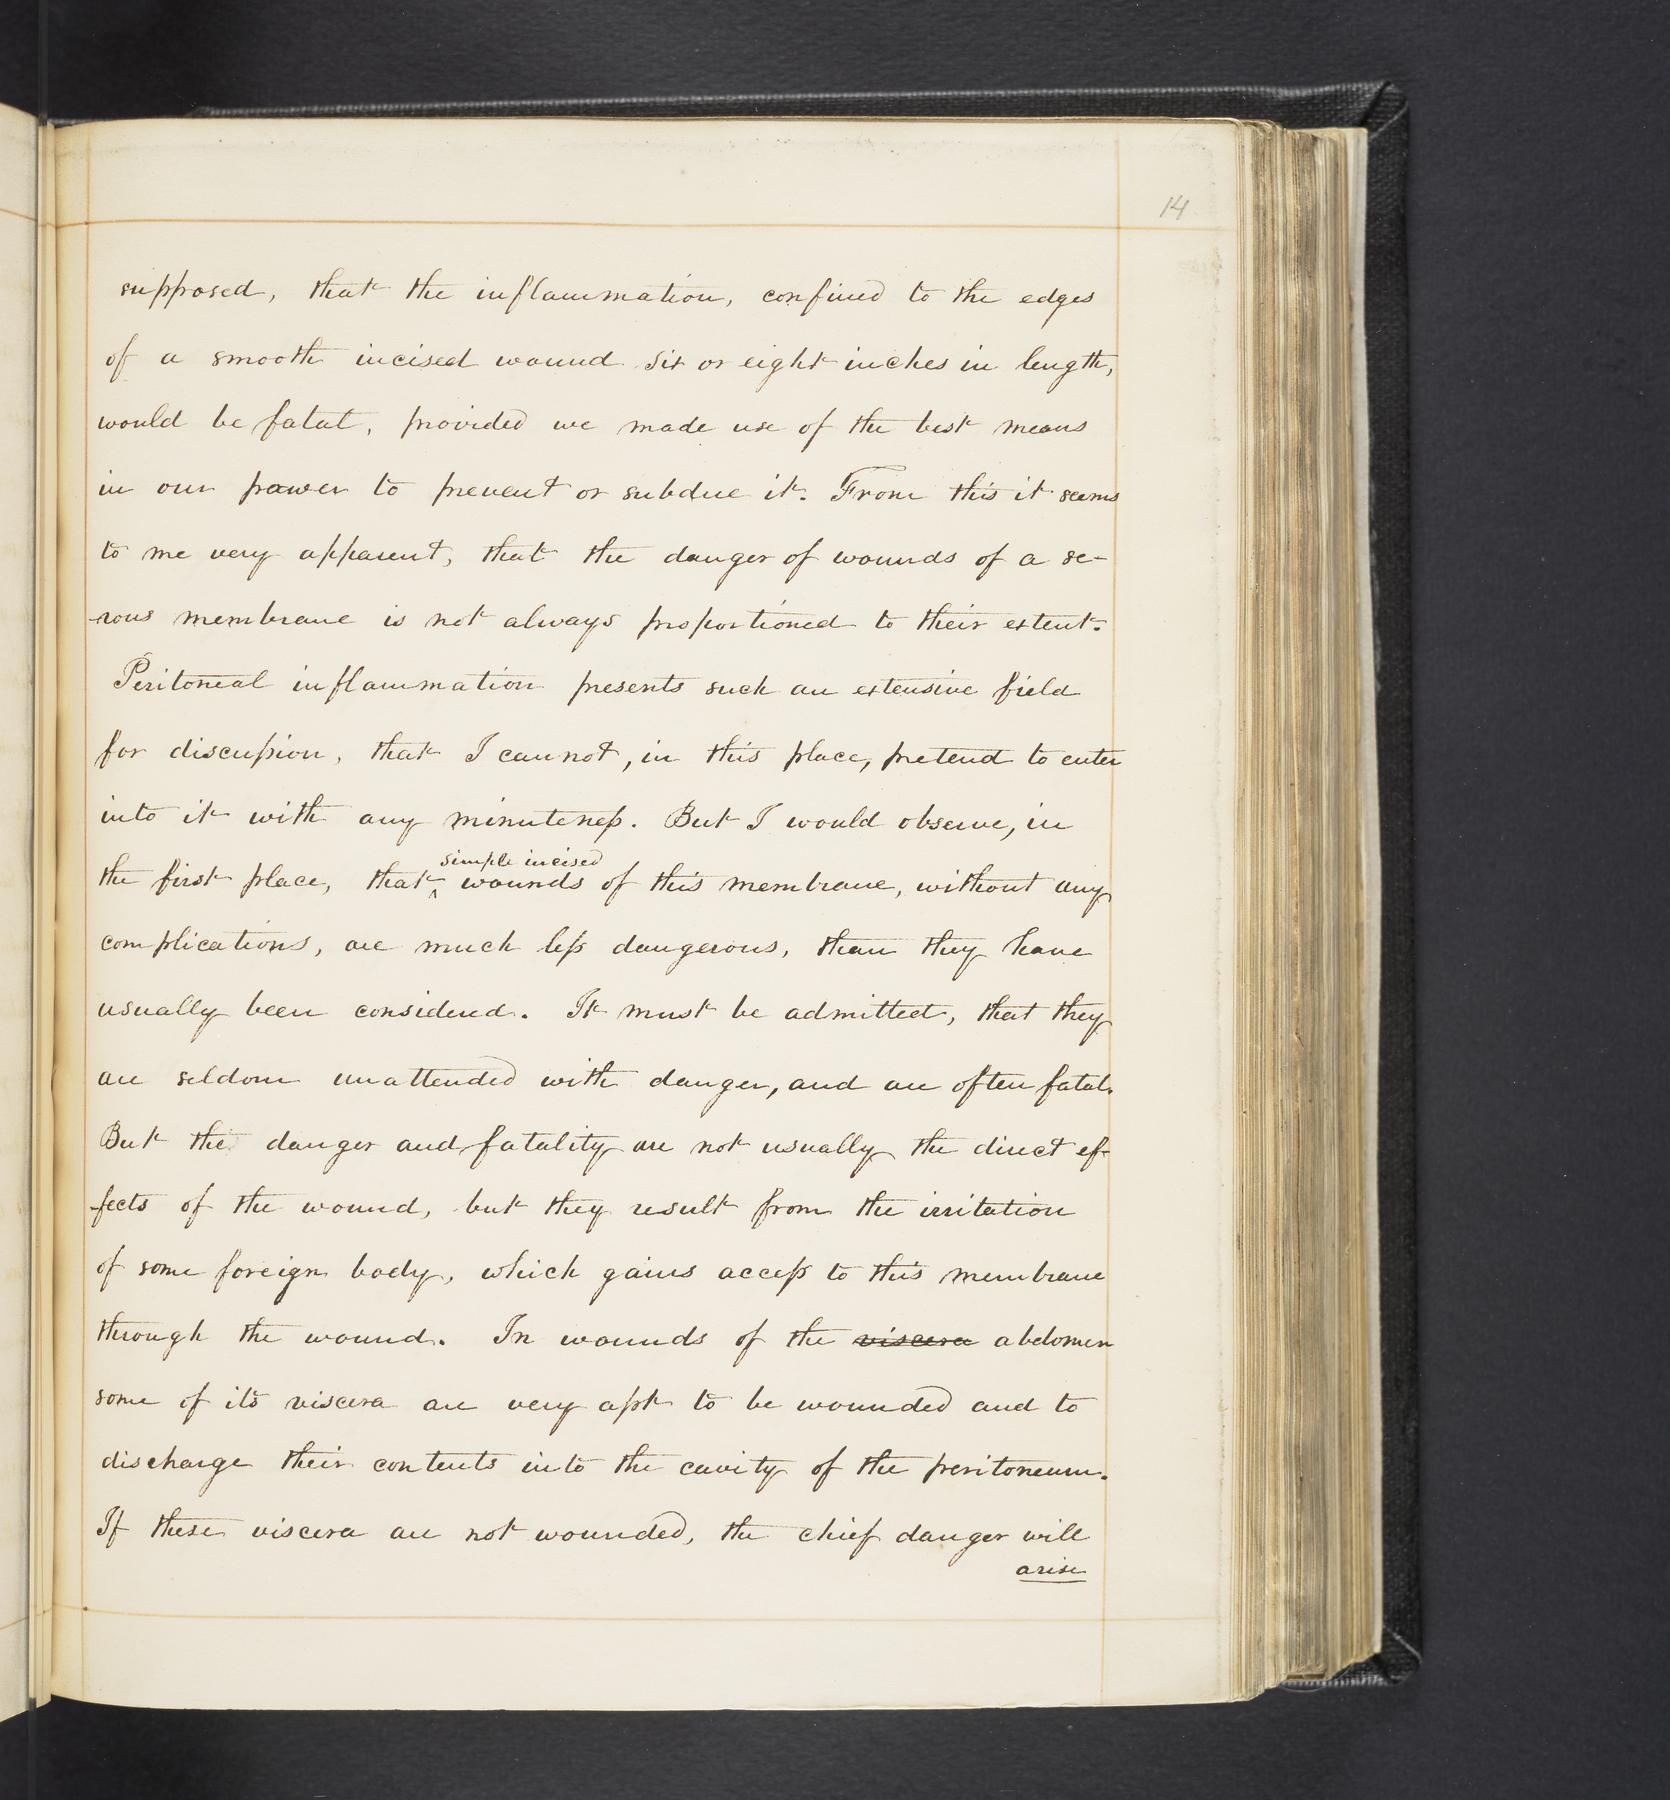 14
supposed, that the inflammation, confined to the edges
of a smooth incised wound six or eight inches in length,
would be fatal, provided we made use of the best means
in our power to prevent or subdue it. From this it seems
to me very apparent, that the danger of wounds of a se-
rous membrane is not always proportioned to their extent.
Peritoneal inflammation presents such an extensive field
for discussion, that I cannot, in this place, pretend to enter
into it with any minuteness. But I would observe, in
simple incised
the first place, that ^ wounds of this membrane, without any
complications, are much less dangerous, than they have
usually been considered. It must be admitted, that they
are seldom unattended with danger, and are often fatal.
But the danger and fatality are not usually the direct ef-
fects of the wound, but they result from the irritation
of some foreign body, which gains access to this membrane
through the wound. In wounds of the viscera abdomen
some of its viscera are very apt to be wounded and to
discharge their contents into the cavity of the peritoneum.
If these viscera are not wounded, the chief danger will
arise